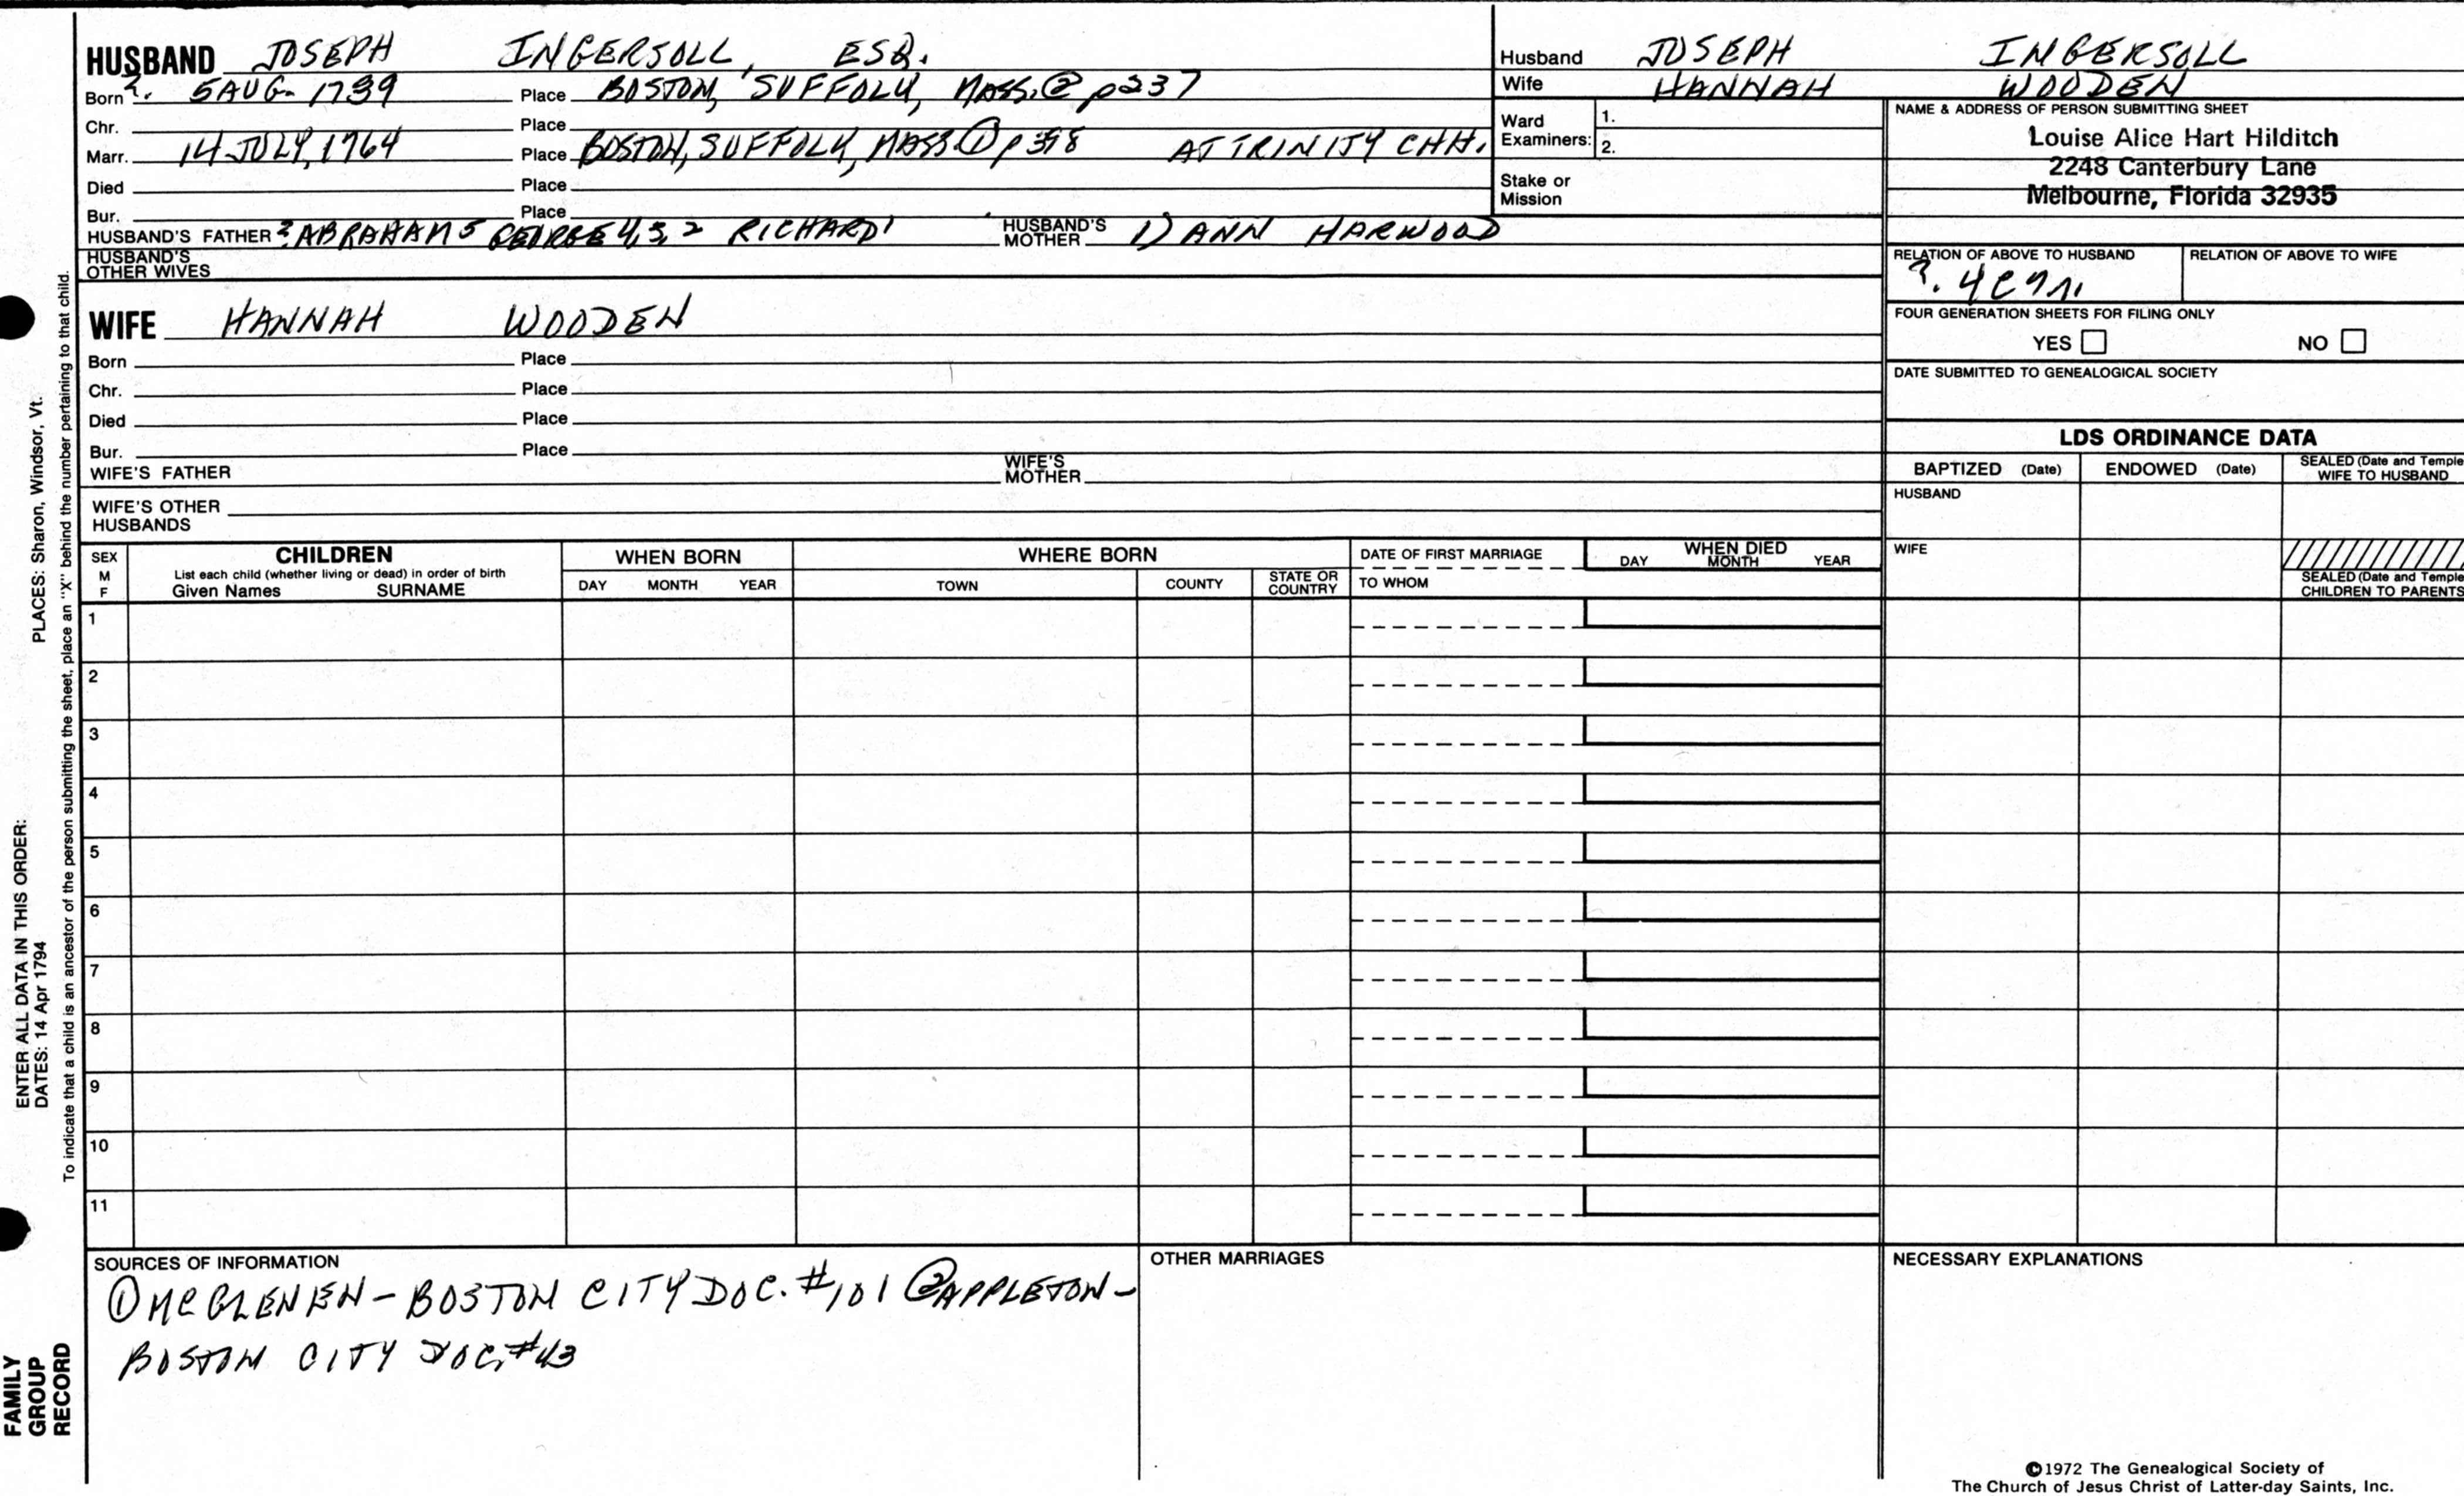 HUSBAND JOSEPH INGERSOLL, ESQ.
Born ?. 5 AUG. 1739 Place BOSTON, SUFFOLK, MASS. ② p237
Chr. Place
Marr. 14 JULY, 1764 Place BOSTON, SUFFOLK, MASS ① p 398 AT TRINITY CHH.
Died Place
Bur. Place
HUSBAND'S FATHER ? ABRAHAM 5 GEORGE 4, 3, 2 RICHARD 1 HUSBAND'S MOTHER 1) ANN HARWOOD
HUSBAND'S OTHER WIVES
Husband JOSEPH INGERSOLL
Wife HANNAH WOODEN
Ward Examiners: 1.
2.
Stake or Mission
NAME & ADDRESS OF PERSON SUBMITTING SHEET
Louise Alice Hart Hilditch
2248 Canterbury Lane
Melbourne, Florida 32935
RELATION OF ABOVE TO HUSBAND RELATION OF ABOVE TO WIFE
FOUR GENERATION SHEETS FOR FILING ONLY
YES NO
DATE SUBMITTED TO GENEALOGICAL SOCIETY
WIFE HANNAH WOODEN
Born Place
Chr. Place
Died Place
Bur. Place
WIFE'S FATHER WIFE'S MOTHER
WIFE'S OTHER HUSBANDS
LDS ORDINANCE DATA
BAPTIZED (Date) ENDOWED (Date) SEALED (Date and Temple) WIFE TO HUSBAND
HUSBAND
WIFE
SEALED (Date and Temple) CHILDREN TO PARENTS
SEX M F
CHILDREN
List each child (whether living or dead) in order of birth
Given Names SURNAME
WHEN BORN
DAY MONTH YEAR
WHERE BORN
TOWN COUNTY STATE OR COUNTRY
DATE OF FIRST MARRIAGE
TO WHOM
WHEN DIED
DAY MONTH YEAR
1
2
3
4
5
6
7
8
9
10
11
SOURCES OF INFORMATION
① MCGLENEN - BOSTON CITY DOC. #101 ② APPLETON -
BOSTON CITY DOC. #43
OTHER MARRIAGES
NECESSARY EXPLANATIONS
©1972 The Genealogical Society of
The Church of Jesus Christ of Latter-day Saints, Inc.
ENTER ALL DATA IN THIS ORDER:
DATES: 14 Apr 1794 PLACES: Sharon, Windsor, Vt.
To indicate that a child is an ancestor of the person submitting the sheet, place an "X" behind the number pertaining to that child.
FAMILY
GROUP
RECORD